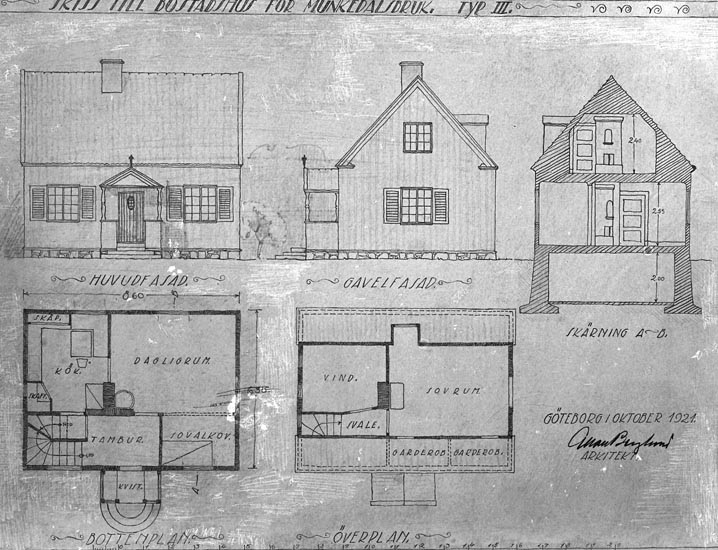 SKISS TILL BOSTADSHUS FÖR MUNKEDALSBRUK. TYP III.
HUVUDFASAD.
GAVELFASAD.
SKÄRNING A-B.
2.40
2.55
2.00
8.60
SKÅP.
KÖK.
DAGLIGRUM.
SKAFF.
TAMBUR.
SOVALKOV.
KVIST.
A
VIND.
SOVRUM.
SVALE.
GARDEROB.
GARDEROB.
GÖTEBORG I OKTOBER 1921.
ARKITEKT
BOTTENPLAN.
ÖVERPLAN.